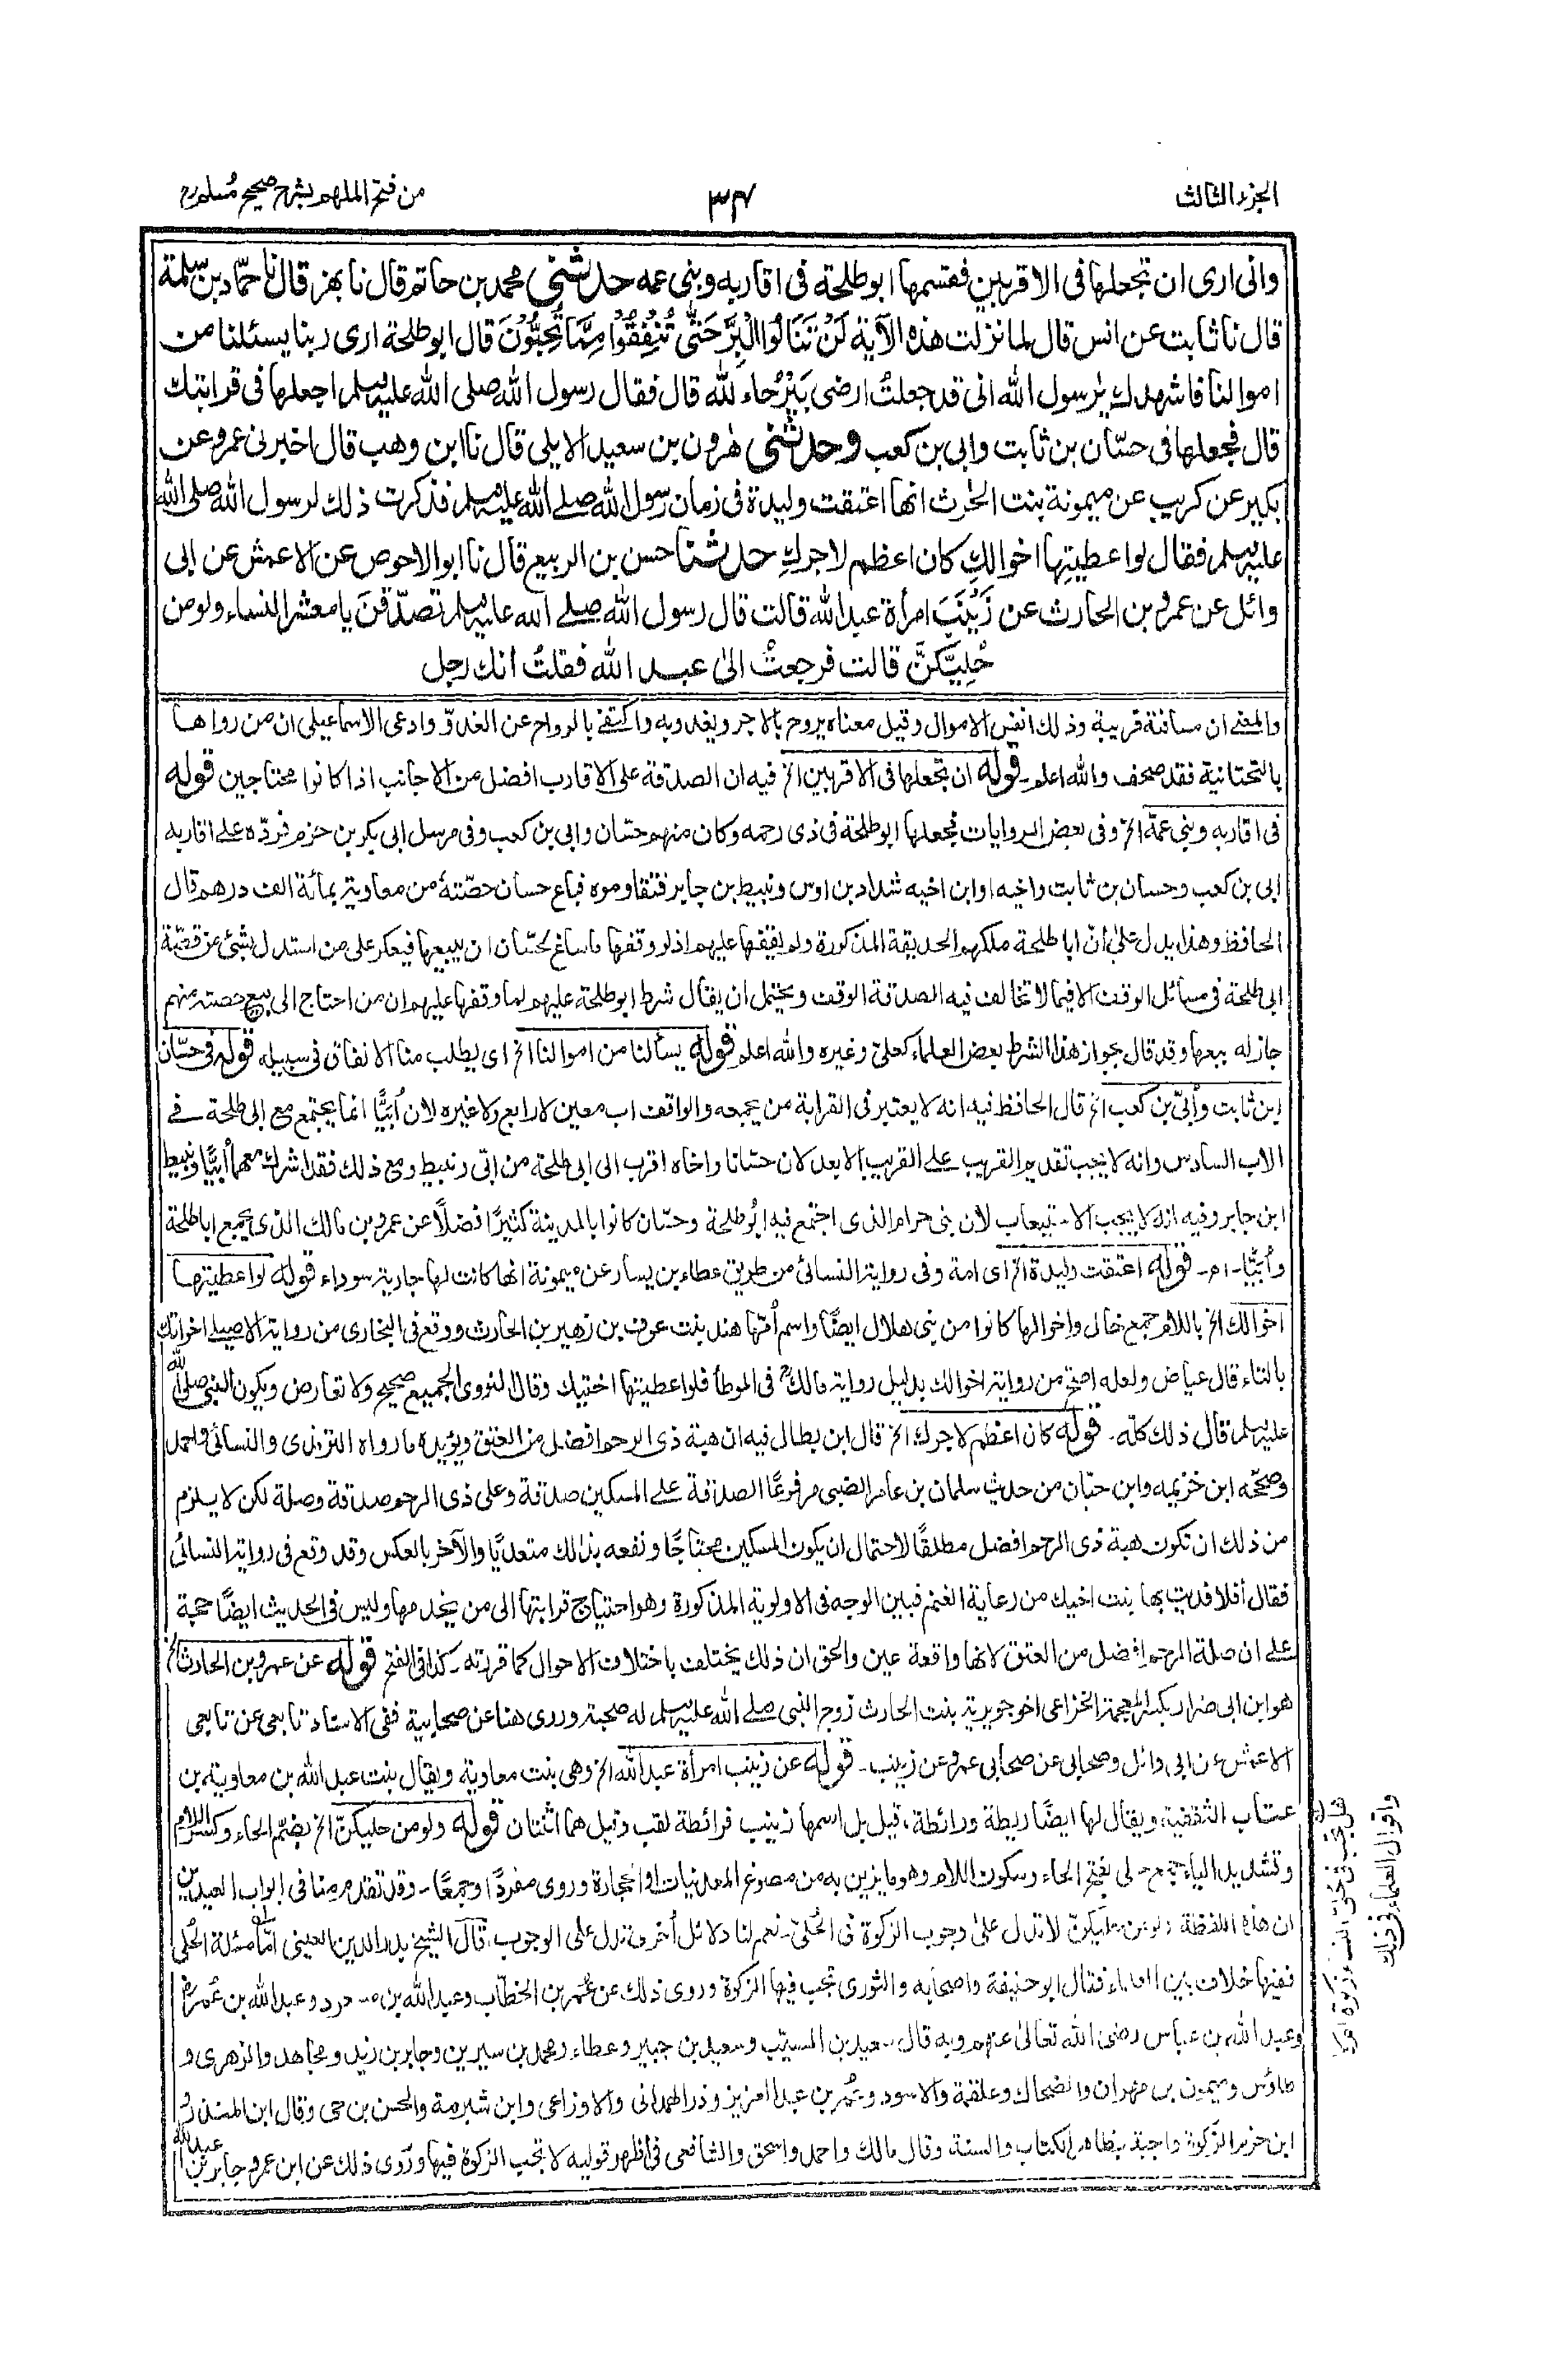 الجزء الثالث
٣٤
من فتح الملهم بشرح صحيح مسلم
وانى ارى ان تجعلها فى الاقربين فقسمها ابو طلحة فى اقاربه وبنى عمه حدثنى محمد بن حاتم قال نا بهز قال نا حمّاد بن سلمة
قال نا ثابت عن انس قال لما نزلت هذه الآية لَنْ تَنَالُوا الْبِرَّ حَتّٰى تُنْفِقُوْا مِمَّا تُحِبُّوْنَ قال ابو طلحة ارى ربنا يسئلنا من
اموالنا فاشهدك يٰرسول الله انى قد جعلتُ ارضى بَيْرُحاء لله قال فقال رسول الله صلى الله عليه وسلم اجعلها فى قرابتك
قال فجعلها فى حسّان بن ثابت وابى بن كعب وحدثنى هٰرون بن سعيد الايلى قال نا ابن وهب قال اخبرنى عمرو عن
بكير عن كريب عن ميمونة بنت الحٰرث انها اعتقت وليدة فى زمان رسول الله صلے الله عليه وسلم فذكرت ذلك لرسول الله صلى الله
عليه وسلم فقال لو اعطيتِها اخوالكِ كان اعظم لاجركِ حدثنا حسن بن الربيع قال نا ابو الاحوص عن الاعمش عن ابى
وائل عن عمرو بن الحارث عن زَيْنَبَ امرأة عبد الله قالت قال رسول الله صلے الله عليه وسلم تصدّقنَ يا معشر النساء ولو من
حُلِيِّكنَّ قالت فرجعتْ الىٰ عبد الله فقلتُ انك رجل
والمعنى ان مسافته قريبة وذلك انفس الاموال وقيل معناه يروح بالاجر ويغدو به واكتفے بالرواح عن الغدوّ وادعى الاسماعيلى ان من رواها
بالتحتانية فقد صحف والله اعلم ـ قوله ان تجعلها فى الاقربين الخ فيه ان الصدقة على الاقارب افضل من الاجانب اذا كانوا محتاجين قوله
فى اقاربه وبنى عمه الخ وفى بعض الروايات فجعلها ابو طلحة فى ذى رحمه وكان منهم حسّان وابى بن كعب وفى مرسل ابى بكر بن حزم فردّه على اقاربه
ابى بن كعب وحسان بن ثابت واخيه او ابن اخيه شداد بن اوس ونبيط بن جابر فتقاوموه فباع حسان حصّته من معاوية بمائة الف درهم قال
الحافظ وهذا يدل علىٰ انّ ابا طلحة ملكهم الحديقة المذكورة ولم يقفها عليهم اذ لو وقفها ما ساغ لحسّان ان يبيعها فيعكر على من استدل بشئ من قصّة
ابى طلحة فى مسائل الوقف الا فيما لا تخالف فيه الصدقة الوقف ويحتمل ان يقال شرط ابو طلحة عليهم لما وقفها عليهم ان من احتاج الى بيع حصته منهم
جاز له بيعها وقد قال بجواز هذا الشرط بعض العلماء كعلىّ وغيره والله اعلم قوله يسألنا من اموالنا الخ اى يطلب منا الانفاق فى سبيله قوله فى حسّان
ابن ثابت وأبىّ بن كعب الخ قال الحافظ فيه انه لا يعتبر فى القرابة من يجمعه والواقف اب معين لا رابع ولا غيره لان أُبيًّا انما يجتمع مع ابى طلحة فے
الاب السادس وانه لا يجب تقديم القريب علے القريب الابعد لان حسّانا واخاه اقرب الى ابى طلحة من ابىّ ونبيط ومع ذلك فقد اشرك معهما أبيًّا ونبيط
ابن جابر وفيه انه لا يجب الاستيعاب لان بنى حرام الذى اجتمع فيه ابُو طلحة وحسّان كانوا بالمدينة كثيرًا فضلًا عن عمرو بن مالك الذى يجمع ابا طلحة
وأُبيًّا ـ اھ ـ قوله اعتقت وليدة الخ اى امة وفى رواية النسائى من طريق عطاء بن يسار عن ميمونة انها كانت لها جارية سوداء قوله لو اعطيتها
اخوالك الخ باللام جمع خال واخوالها كانوا من بنى هلال ايضًا واسم أمّها هند بنت عوف بن زهير بن الحارث ووقع فى البخارى من رواية الاصيلے اخواتك
بالتاء قال عياض ولعله اصح من رواية اخوالك بدليل رواية مالكؒ فى الموطأ فلو اعطيتها اختيك وقال النووى الجميع صحيح ولا تعارض ويكون النبى صلى الله
عليه وسلم قال ذلك كلّه ـ قوله كان اعظم لاجرك الخ قال ابن بطال فيه ان هبة ذى الرحم افضل من العتق ويؤيده ما رواه الترمذى والنسائى واحمد
وصحّحه ابن خزيمه وابن حبّان من حديث سلمان بن عامر الضبى مرفوعًا الصدقة علے المسكين صدقة وعلى ذى الرحم صدقة وصلة لكن لا يلزم
من ذلك ان تكون هبة ذى الرحم افضل مطلقًا لاحتمال ان يكون المسكين محتاجًا ونفعه بذالك متعديًا والآخر بالعكس وقد وقع فى رواية النسائى
فقال أفلا فديت بها بنت اخيك من رعاية الغنم فبين الوجه فى الاولوية المذكورة وهو احتياج قرابتها الى من يخدمها وليس فى الحديث ايضًا حجة
علے ان صلة الرحم افضل من العتق لانها واقعة عين والحق ان ذلك يختلف باختلاف الاحوال كما قررته ـ كذا فى الفتح قوله عن عمرو بن الحارث الخ
هو ابن ابى ضرار بكسر المعجمة الخزاعى اخو جويرية بنت الحارث زوج النبى صلے الله عليه وسلم له صحبة وروى هنا عن صحابية ففى الاسناد تابعى عن تابعى
الاعمش عن ابى وائل وصحابى عن صحابى عمرو عن زينب ـ قوله عن زينب امرأة عبد الله الخ وهى بنت معاوية ويقال بنت عبد الله بن معاوية بن
عتاب الثقفية ويقال لها ايضًا ريطة ورائطة، قيل بل اسمها زينب فرائطة لقب وقيل هما اثنتان قوله ولو من حليكنّ الخ بضم الحاء وكسر اللام
وتشديد الياء جمع حلى بفتح الحاء وسكون اللام وهو ما يزين به من مصوغ المعدنيات او الحجارة وروى مفردًا وجمعًا ـ وقد تقدم منا فى ابواب العيدين
ان هذه اللفظة ولو من حليكنّ لا تدل علىٰ وجوب الزكوة فى الحُلىّ ـ نعم لنا دلائل أخر تدل على الوجوب، قال الشيخ بدر الدين العينى امّا مسئلة الحُلى
ففيها خلاف بين العلماء فقال ابو حنيفة واصحابه والثورى تجب فيها الزكوة وروى ذلك عن عُمر بن الخطّاب وعبد الله بن مسعود وعبد الله بن عُمر
وعبد الله بن عباس رضى الله تعالىٰ عنهم وبه قال سعيد بن المسيّب وسعيد بن جبير وعطاء ومحمد بن سيرين وجابر بن زيد ومجاهد والزهرى و
طاؤس وميمون بن مهران والضحاك وعلقمة والاسود وعُمر بن عبد العزيز وذر الهمدانى والاوزاعى وابن شبرمة والحسن بن حى وقال ابن المنذر و
ابن حزم الزكوة واجبة بظاهر الكتاب والسنة، وقال مالك واحمد واسحق والشافعى فى اظهر قوليه لا تجب الزكوة فيها ورُوى ذلك عن ابن عمر و جابر بن عبد الله
هل تجب فى حلىّ زكوة ام لا
واقوال العلماء فى ذلك